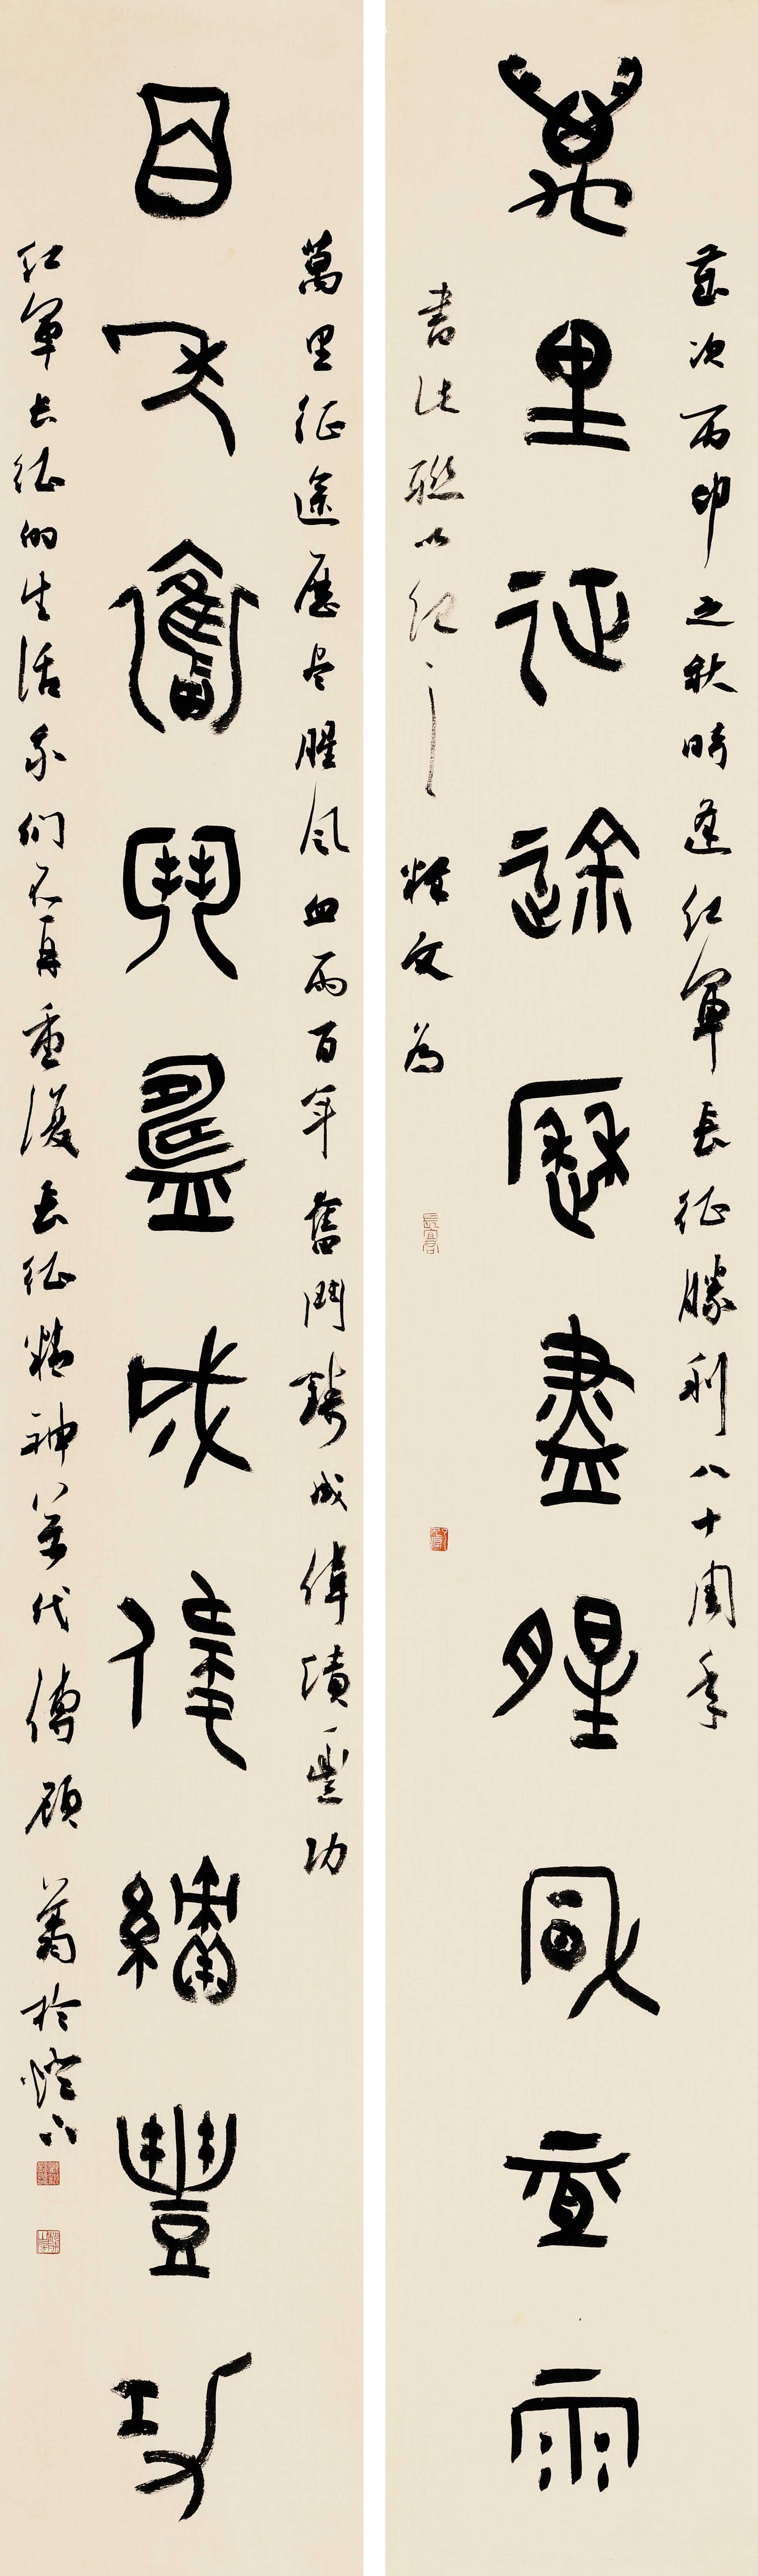 歲次丙申之秋時逢红軍長征勝利八十周年
萬里征途歷盡腥風血雨
書此聯以纪之 釋文為
萬里征途歷尽腥风血雨百年奮鬥鑄成偉績豐功
百年奮鬥鑄成偉績豐功
红軍长征的生活我们不再重複长征精神万代傳頌 於燈下